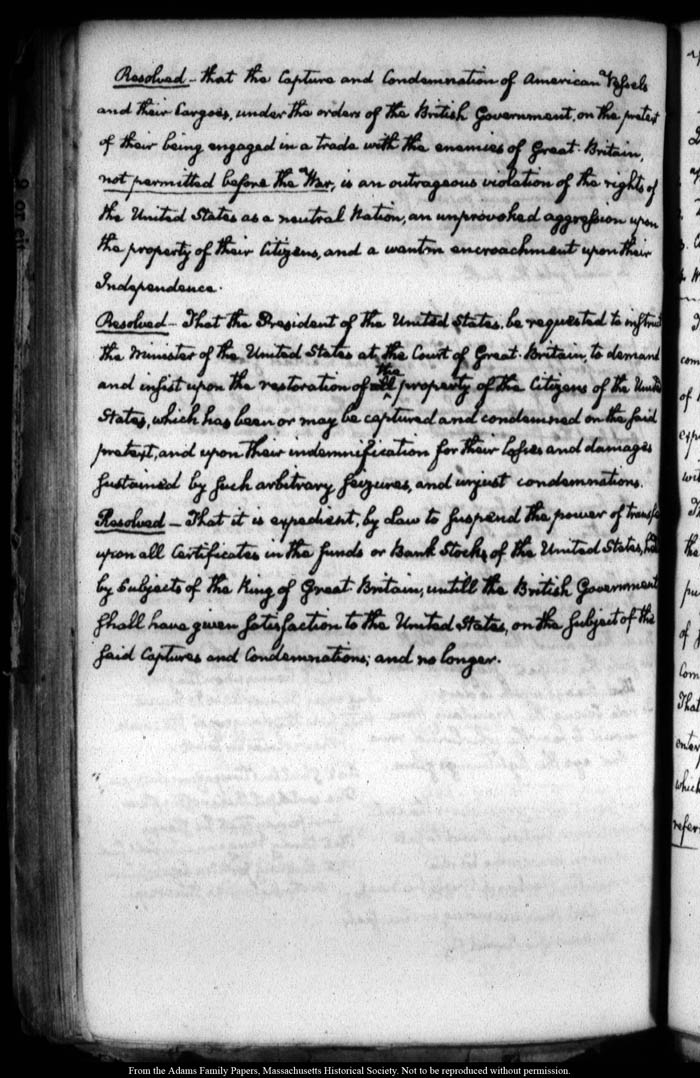 Resolved – that the Capture and Condemnation of American Vessels
and their Cargoes, under the orders of the British Government, on the pretext
of their being engaged in a trade with the enemies of Great-Britain,
not permitted before the War, is an outrageous violation of the rights of
the United States as a neutral Nation, an unprovoked aggression upon
the property of their Citizens, and a wanton encroachment upon their
Independence.
Resolved – That the President of the United States, be requested to instruct
the Minister of the United States at the Court of Great-Britain, to demand
and insist upon the restoration of the property of the Citizens of the United
States, which has been or may be captured and condemned on the said
pretext, and upon their indemnification for their losses and damages
sustained by such arbitrary seizures, and unjust condemnations.
Resolved – That it is expedient, by Law to suspend the power of transfer
upon all Certificates in the funds or Bank Stocks, of the United States, held
by Subjects of the King of Great-Britain, untill the British Government
shall have given satisfaction to the United States, on the subject of the
said Captures and Condemnations; and no longer.
From the Adams Family Papers, Massachusetts Historical Society. Not to be reproduced without permission.